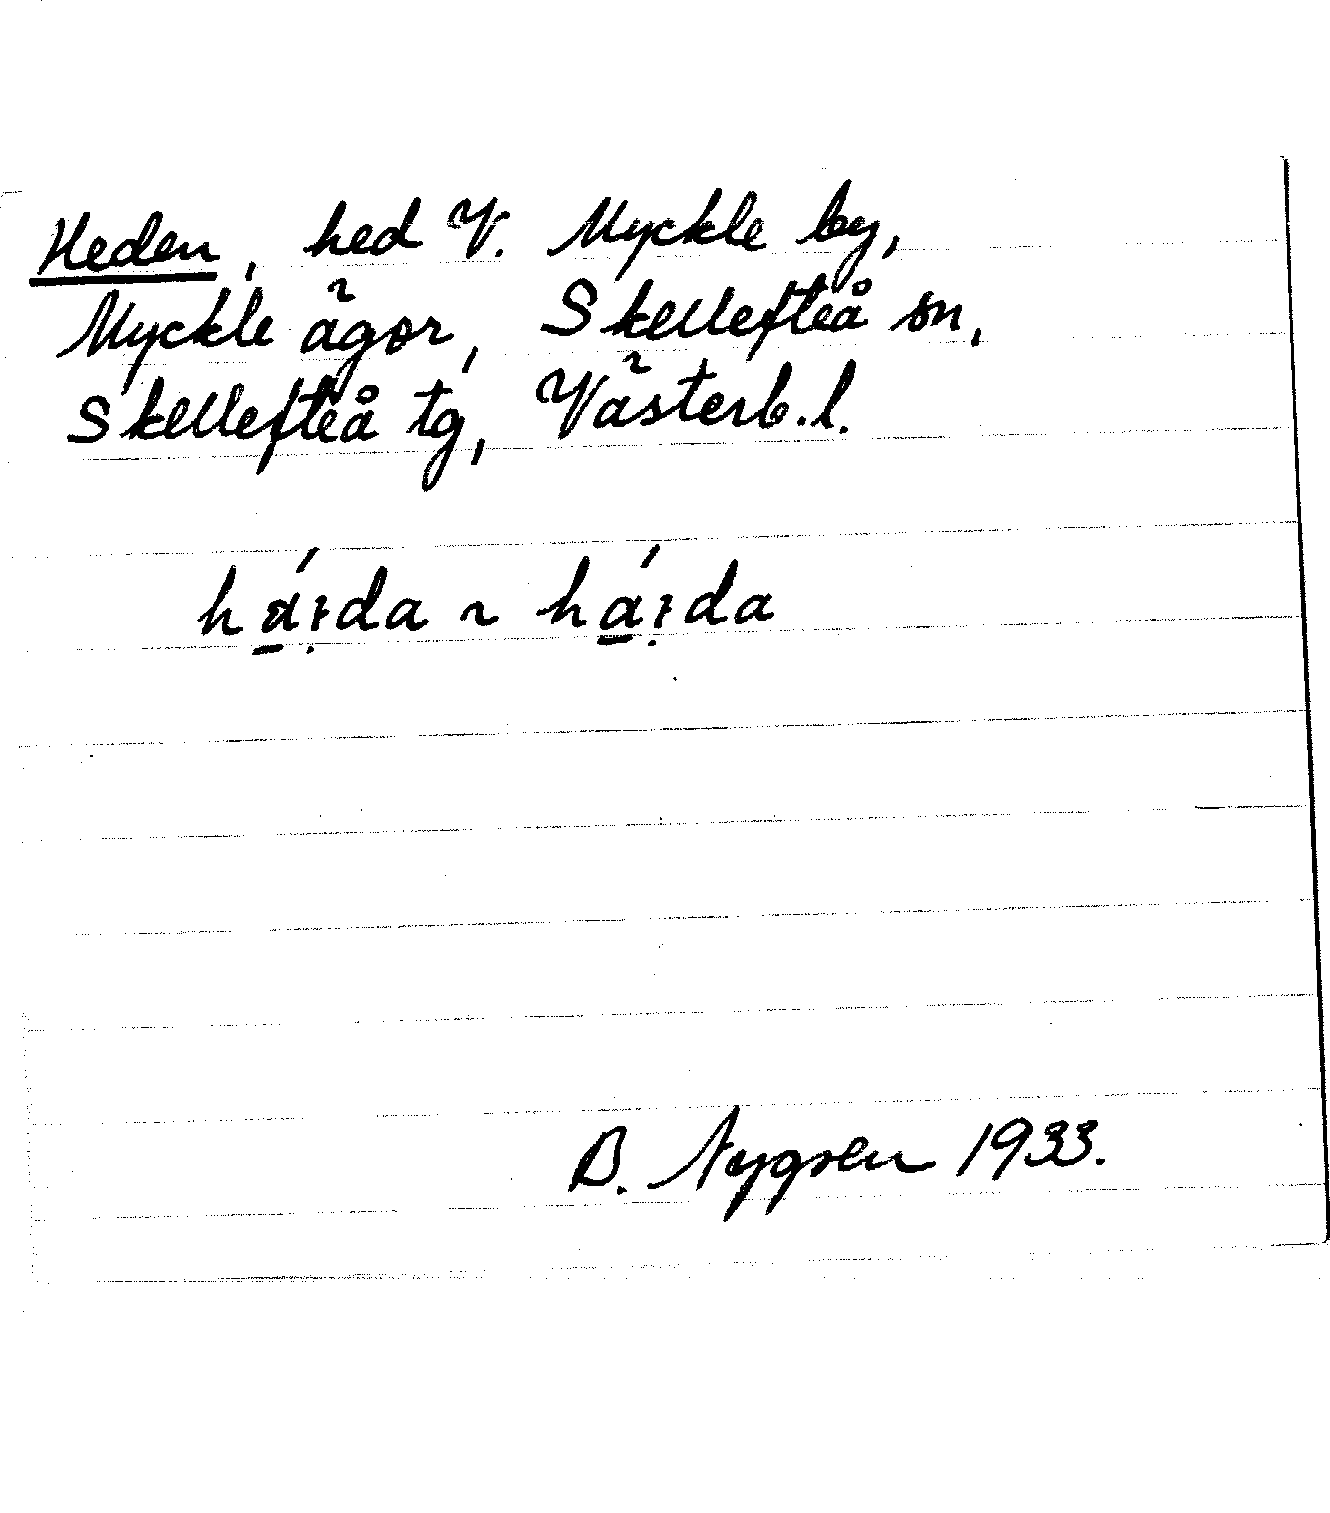 Heden, hed V. Myckle by,
Myckle ägor, Skellefteå sn,
Skellefteå tg, Västerb. l.
B. Nygren 1933.